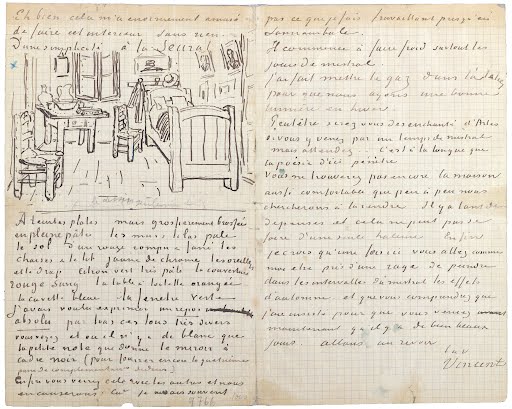 Eh bien cela m'a énormément amusé
de faire cet intérieur sans rien.
D'une simplicité à la Seurat.
À teintes plates mais grossièrement brossées
en pleine pâte les murs lilas pâle
le sol d'un rouge rompu & fané les
chaises & le lit jaune de chrome, les oreillers
et le drap citron vert très pâle la couverture
rouge sang la table à toilette orangée
la cuvette bleue la fenêtre verte
J'avais voulu exprimer un repos
absolu par tous ces tons très divers
vous voyez et où il n'y a de blanc que
la petite note que donne le miroir à
cadre noir (pour fourrer encore la quatrième
paire de complémentaires dedans)
Enfin vous verrez cela avec les autres et nous
en causerons car je ne sais souvent
9766
pas ce que je fais travaillant presqu'en
somnambule.
Il commence à faire froid surtout les
jours de mistral.
J'ai fait mettre le gaz dans l'atelier
pour que nous ayons une bonne
lumière en hiver.
Peut-être serez vous désenchanté d'Arles
si vous y venez par un temps de mistral
mais attendez c'est à la longue que
la poésie d'ici pénètre
Vous ne trouverez pas encore la maison
aussi confortable que peu à peu nous
chercherons à la rendre. Il y a tant de
dépenses et cela ne peut pas se
faire d'une seule haleine. Enfin
je crois qu'une fois ici vous allez comme
moi être pris d'une rage de peindre
dans les intervalles du mistral les effets
d'automne et que vous comprendrez que
j'ai insisté pour que vous veniez
maintenant qu'il y a de bien beaux
jours. allons au revoir
t. à v.
Vincent